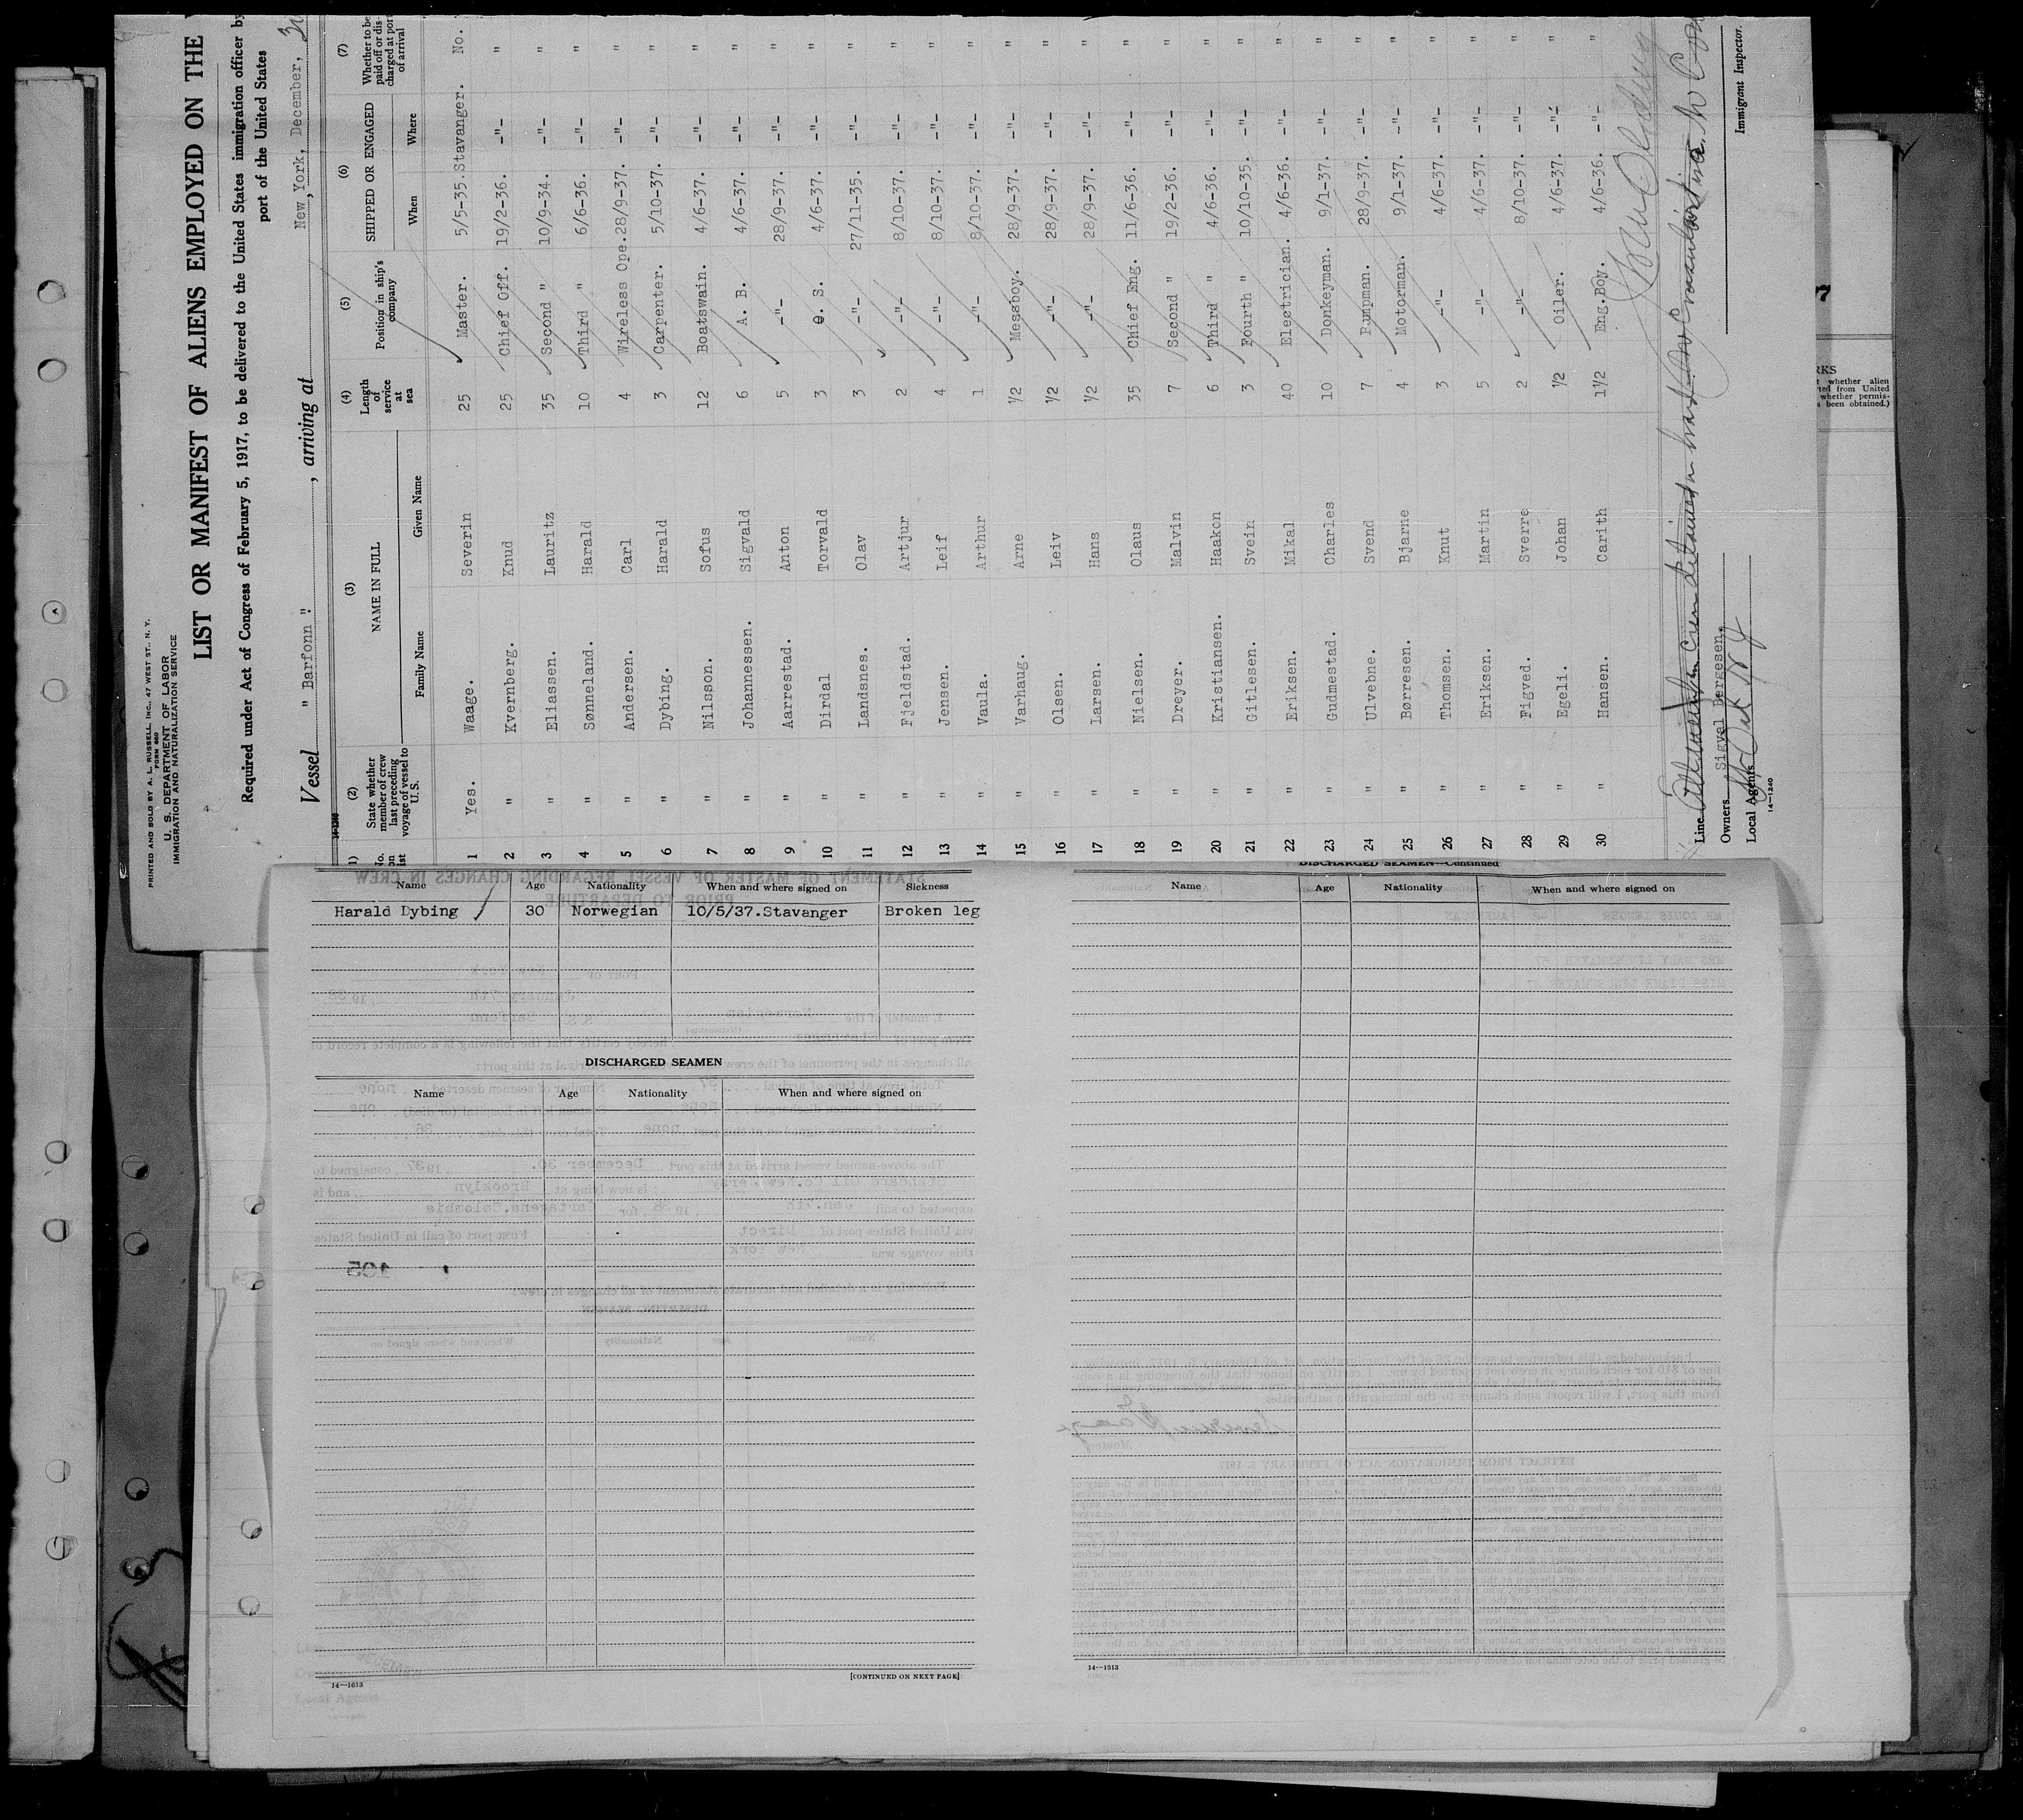 PRINTED AND SOLD BY A. L. RUSSELL, INC., 47 WEST ST., N. Y.
FORM 680
U. S. DEPARTMENT OF LABOR
IMMIGRATION AND NATURALIZATION SERVICE
LIST OR MANIFEST OF ALIENS EMPLOYED ON THE
Required under Act of Congress of February 5, 1917, to be delivered to the United States immigration officer by
port of the United States
Vessel " Barfonn ". , arriving at New York, December,
(1) (2) (3) (4) (5) (6) (7)
No. on list State whether member of crew last preceding voyage of vessel to U. S. NAME IN FULL Length of service at sea Position in ship's company SHIPPED OR ENGAGED Whether to be paid off or discharged at port of arrival
Family Name Given Name When Where
1 Yes. Waage. Severin 25 Master. 5/5-35. Stavanger. No.
2 " Kvernberg. Knud 25 Chief Off. 19/2-36. -"- "
3 " Eliassen. Lauritz 35 Second " 10/9-34. -"- "
4 " Sønneland. Harald 10 Third " 6/6-36. -"- "
5 " Andersen. Carl 4 Wireless Ope. 28/9-37. -"- "
6 " Dybing. Harald 3 Carpenter. 5/10-37. -"- "
7 " Nilsson. Sofus 12 Boatswain. 4/6-37. -"- "
8 " Johannessen. Sigvald 6 A. B. 4/6-37. -"- "
9 " Aarrestad. Anton 5 -"- 28/9-37. -"- "
10 " Dirdal Torvald 3 O. S. 4/6-37. -"- "
11 " Landsnes. Olav 3 -"- 27/11-35. -"- "
12 " Fjeldstad. Artjur 2 -"- 8/10-37. -"- "
13 " Jensen. Leif 4 -"- 8/10-37. -"- "
14 " Vaula. Arthur 1 -"- 8/10-37. -"- "
15 " Varhaug. Arne 1/2 Messboy. 28/9-37. -"- "
16 " Olsen. Leiv 1/2 -"- 28/9-37. -"- "
17 " Larsen. Hans 1/2 -"- 28/9-37. -"- "
18 " Nielsen. Olaus 35 Chief Eng. 11/6-36. -"- "
19 " Dreyer. Malvin 7 Second " 19/2-36. -"- "
20 " Kristiansen. Haakon 6 Third " 4/6-36. -"- "
21 " Gitlesen. Svein 3 Fourth " 10/10-35. -"- "
22 " Eriksen. Mikal 40 Electrician. 4/6-36. -"- "
23 " Gudmestad. Charles 10 Donkeyman. 9/1-37. -"- "
24 " Ulvebne. Svend 7 Pumpman. 28/9-37. -"- "
25 " Børresen. Bjarne 4 Motorman. 9/1-37. -"- "
26 " Thomsen. Knut 3 -"- 4/6-37. -"- "
27 " Eriksen. Martin 5 -"- 4/6-37. -"- "
28 " Figved. Sverre 2 -"- 8/10-37. -"- "
29 " Egeli. Johan 1/2 Oiler. 4/6-37. -"- "
30 " Hansen. Carith 1 1/2 Eng.Boy. 4/6-36. -"- "
Line
Owners Sigval Bergesen.
Local Agents
14—1240
Immigrant Inspector.
Name Age Nationality When and where signed on Sickness
Harald Dybing 30 Norwegian 10/5/37.Stavanger Broken leg
DISCHARGED SEAMEN
Name Age Nationality When and where signed on
14—1513
[CONTINUED ON NEXT PAGE]
DISCHARGED SEAMEN—Continued
Name Age Nationality When and where signed on
14—1513